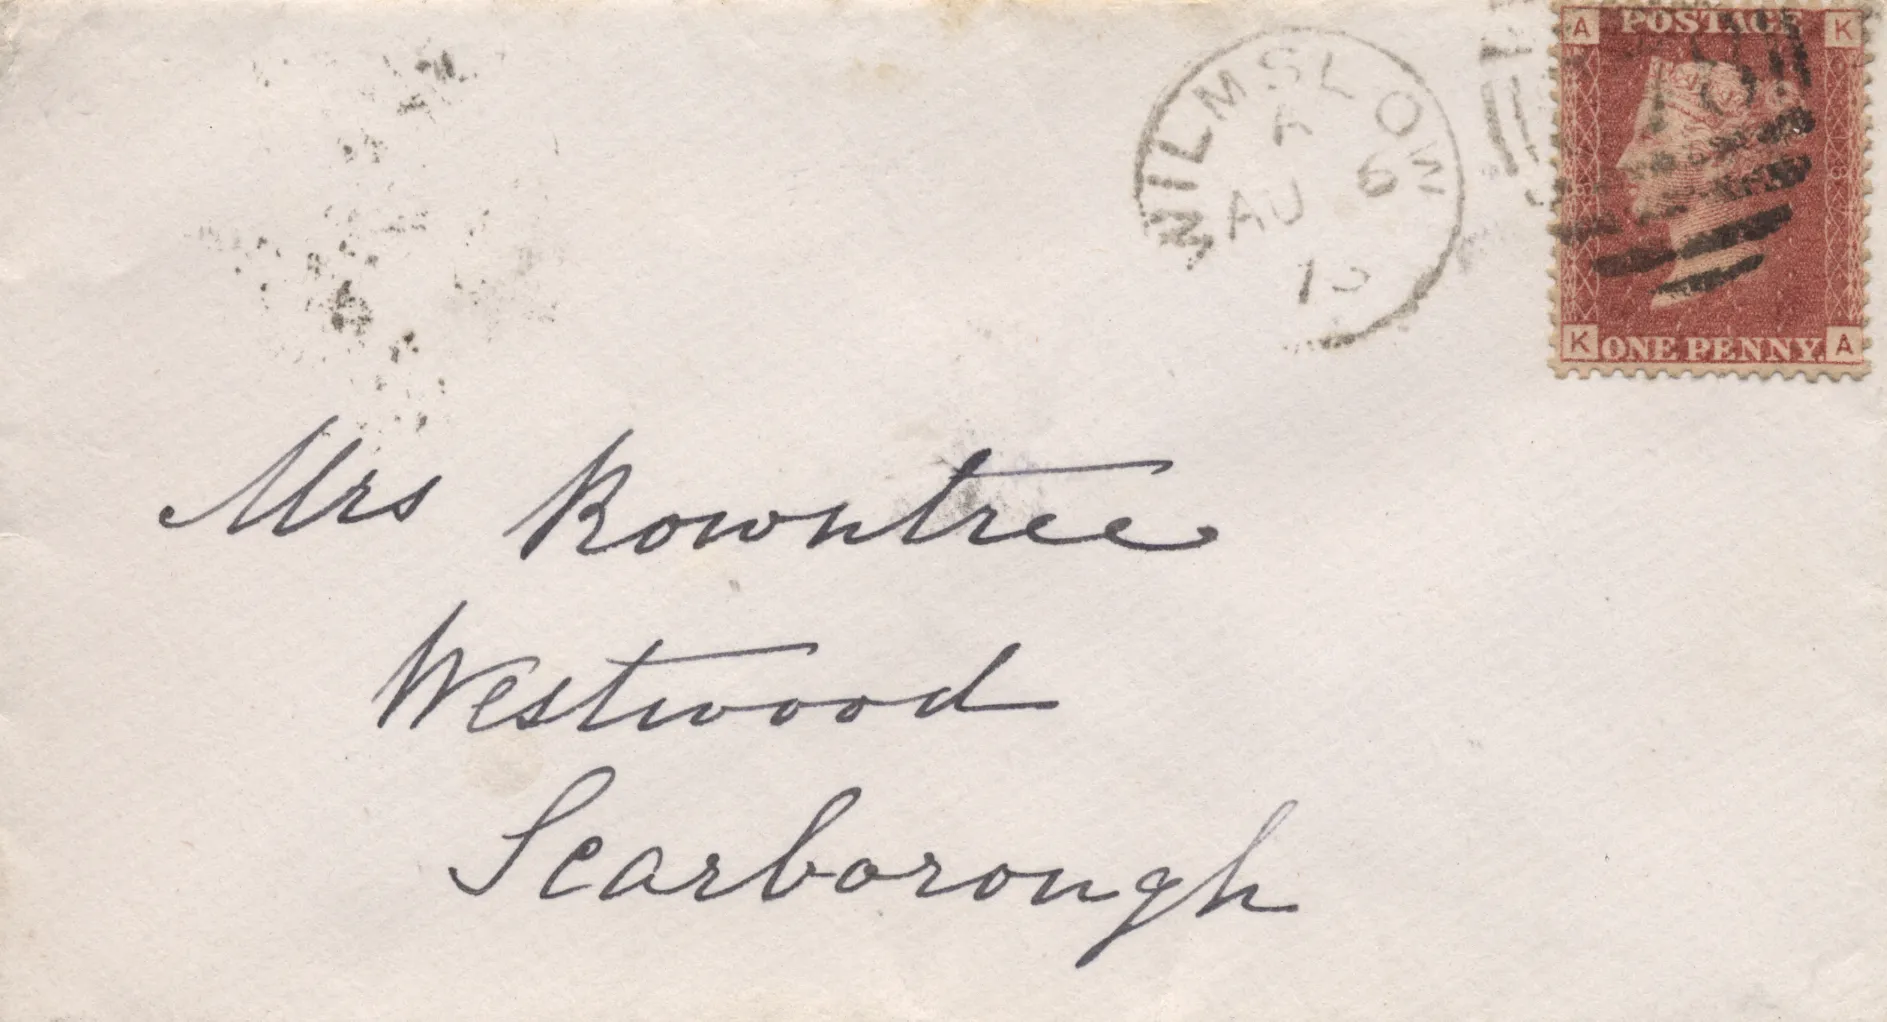 WILMSLOW
AU 6
A POSTAGE K
K ONE PENNY. A
Mrs Rowntree
Westwood
Scarborough